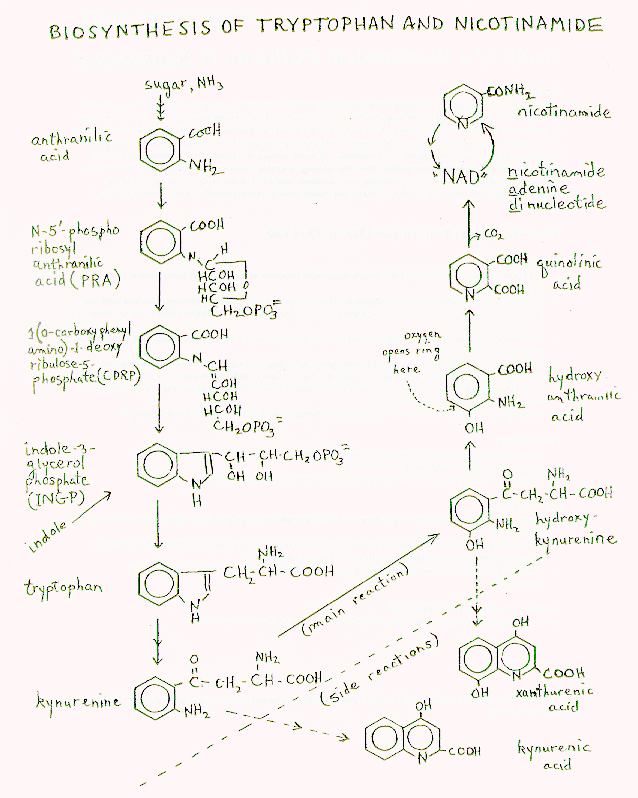 BIOSYNTHESIS OF TRYPTOPHAN AND NICOTINAMIDE
sugar, NH3
anthranilic
acid
COOH
NH2
N-5'-phospho
ribosyl
anthranilic
acid (PRA)
COOH
N
H
C
HCOH
HCOH O
HC
CH2OPO3=
1(o-carboxyphenyl
amino)-1-deoxy
ribulose-5-
phosphate (CDRP)
COOH
N
CH
COH
HCOH
HCOH
CH2OPO3=
indole-3-
glycerol
phosphate
(INGP)
CH-CH-CH2OPO3=
OH OH
N
H
indole
tryptophan
NH2
CH2-CH-COOH
N
H
kynurenine
O
NH2
C-CH2-CH-COOH
NH2
(main reaction)
(side reactions)
CONH2
N
nicotinamide
"NAD"
nicotinamide
adenine
dinucleotide
CO2
COOH
COOH
N
quinolinic
acid
oxygen
opens ring
here
COOH
NH2
OH
hydroxy
anthranilic
acid
O
NH2
C-CH2-CH-COOH
NH2
OH
hydroxy-
kynurenine
OH
N
COOH
OH
xanthurenic
acid
OH
N
COOH
kynurenic
acid